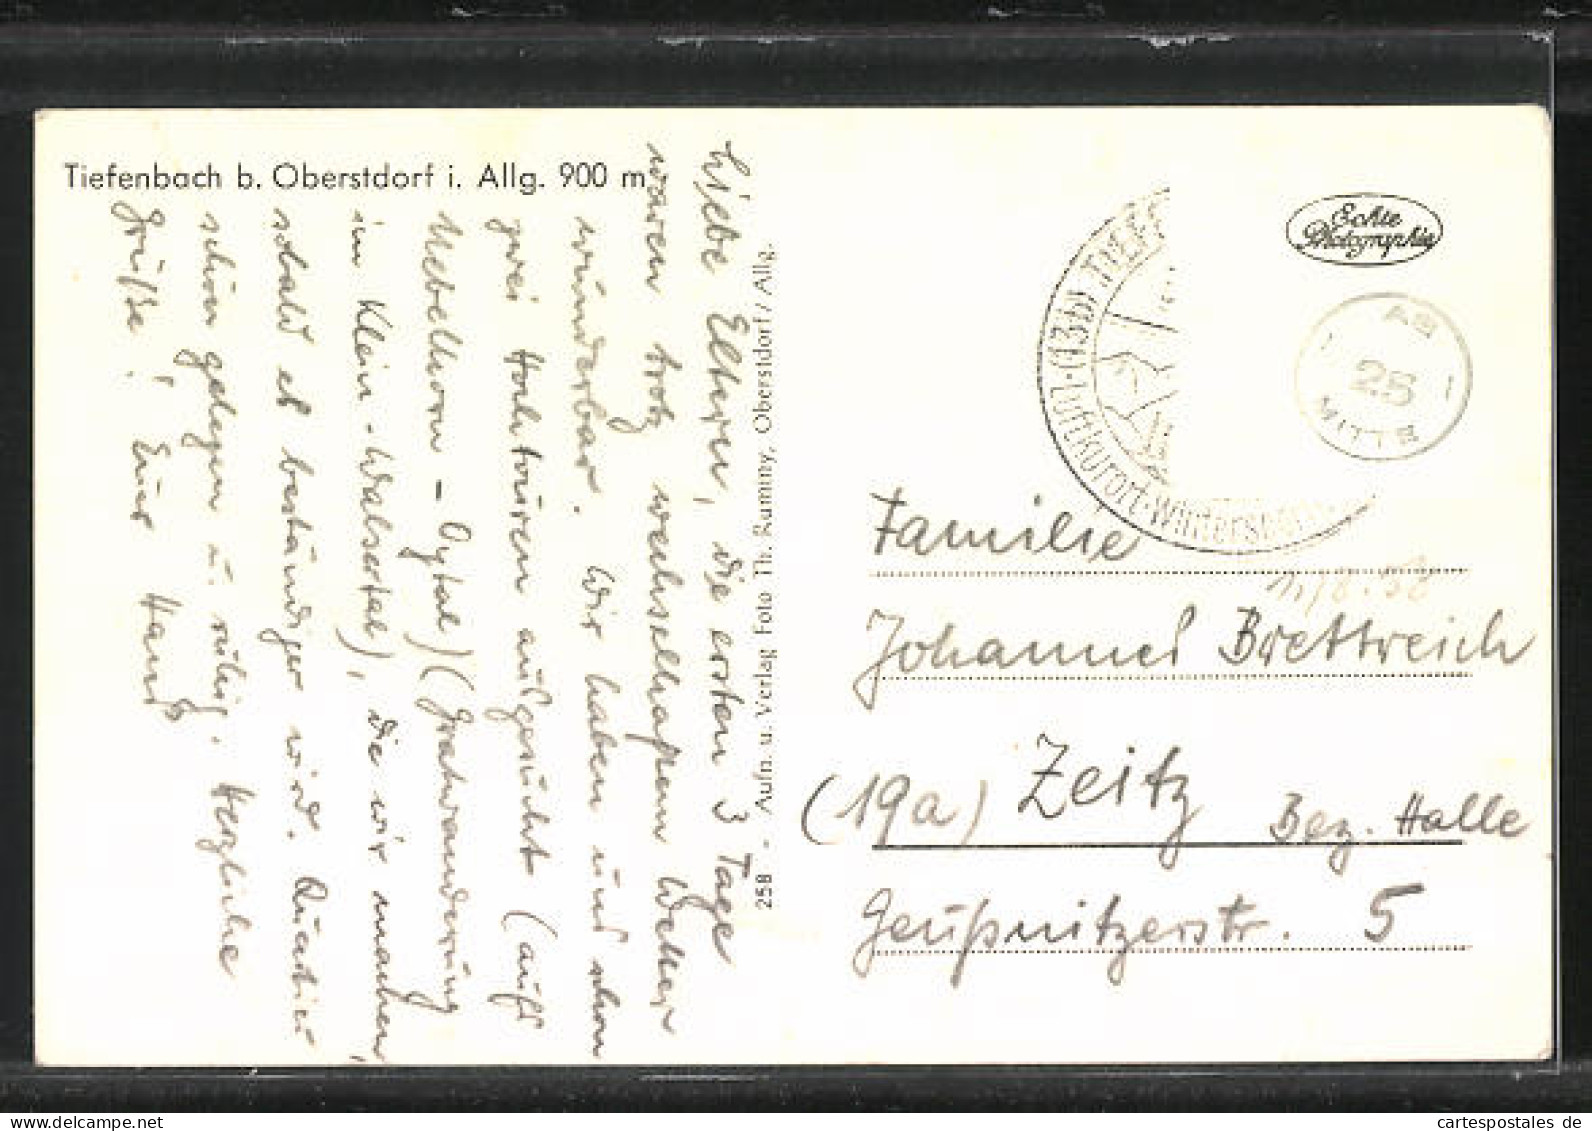 Tiefenbach b. Oberstdorf i. Allg. 900 m
Liebe Eltern, die ersten 3 Tage
waren trotz wechselhaftem Wetter
wunderbar. Wir haben uns schon
zwei Hochtouren ausgesucht (aufs
Nebelhorn - Oytal) (Gratwanderung
im Klein-Walsertal), die wir machen,
sobald es beständiger wird. Quartier
schön gelegen u. ruhig. Herzliche
Grüße! Euer Hans
258 - Aufn. u. Verlag Foto Th. Rummy, Oberstdorf/Allg.
Echte
Photographie
(13b) TIEF
Luftkurort · Wintersport
25
MITTE
Familie
Johannes Brettreich
(19a) Zeitz Bez. Halle
Geußnitzerstr. 5
cartespostales de